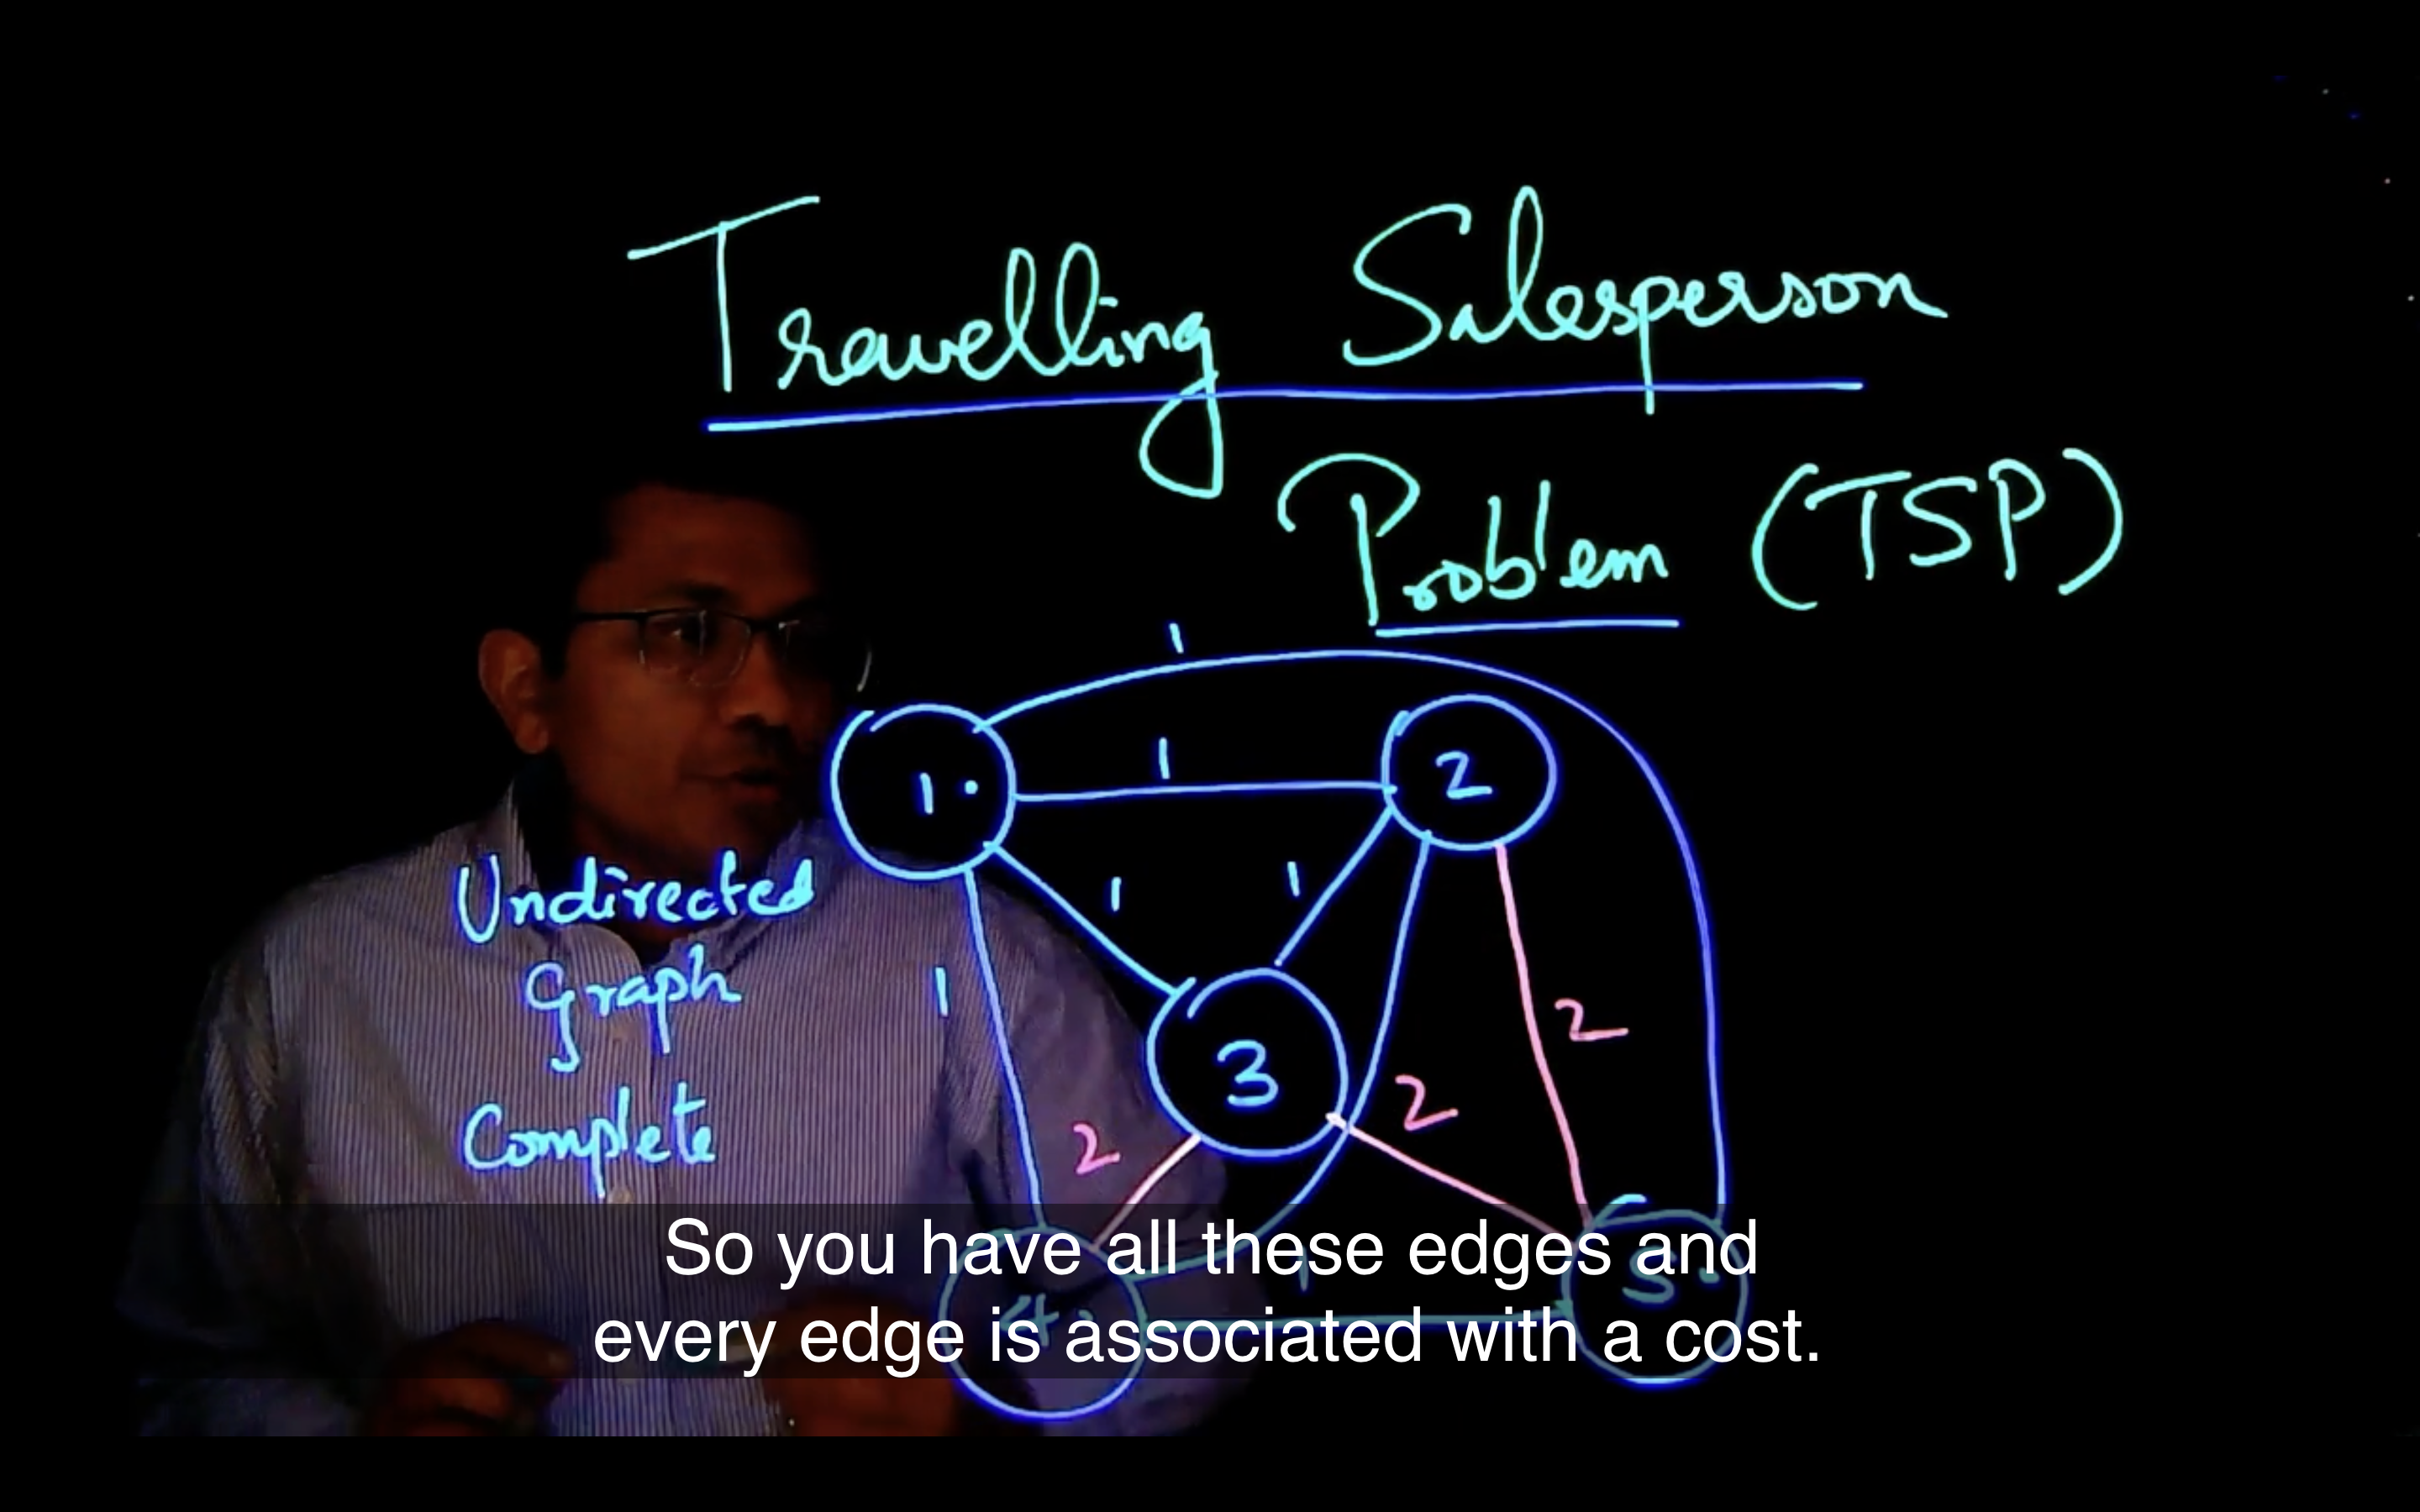 Travelling Salesperson
Problem (TSP)
1
1 1 2
Undirected 1 1
Graph 1 3 2
Complete 2 2
1
4 5
So you have all these edges and
every edge is associated with a cost.